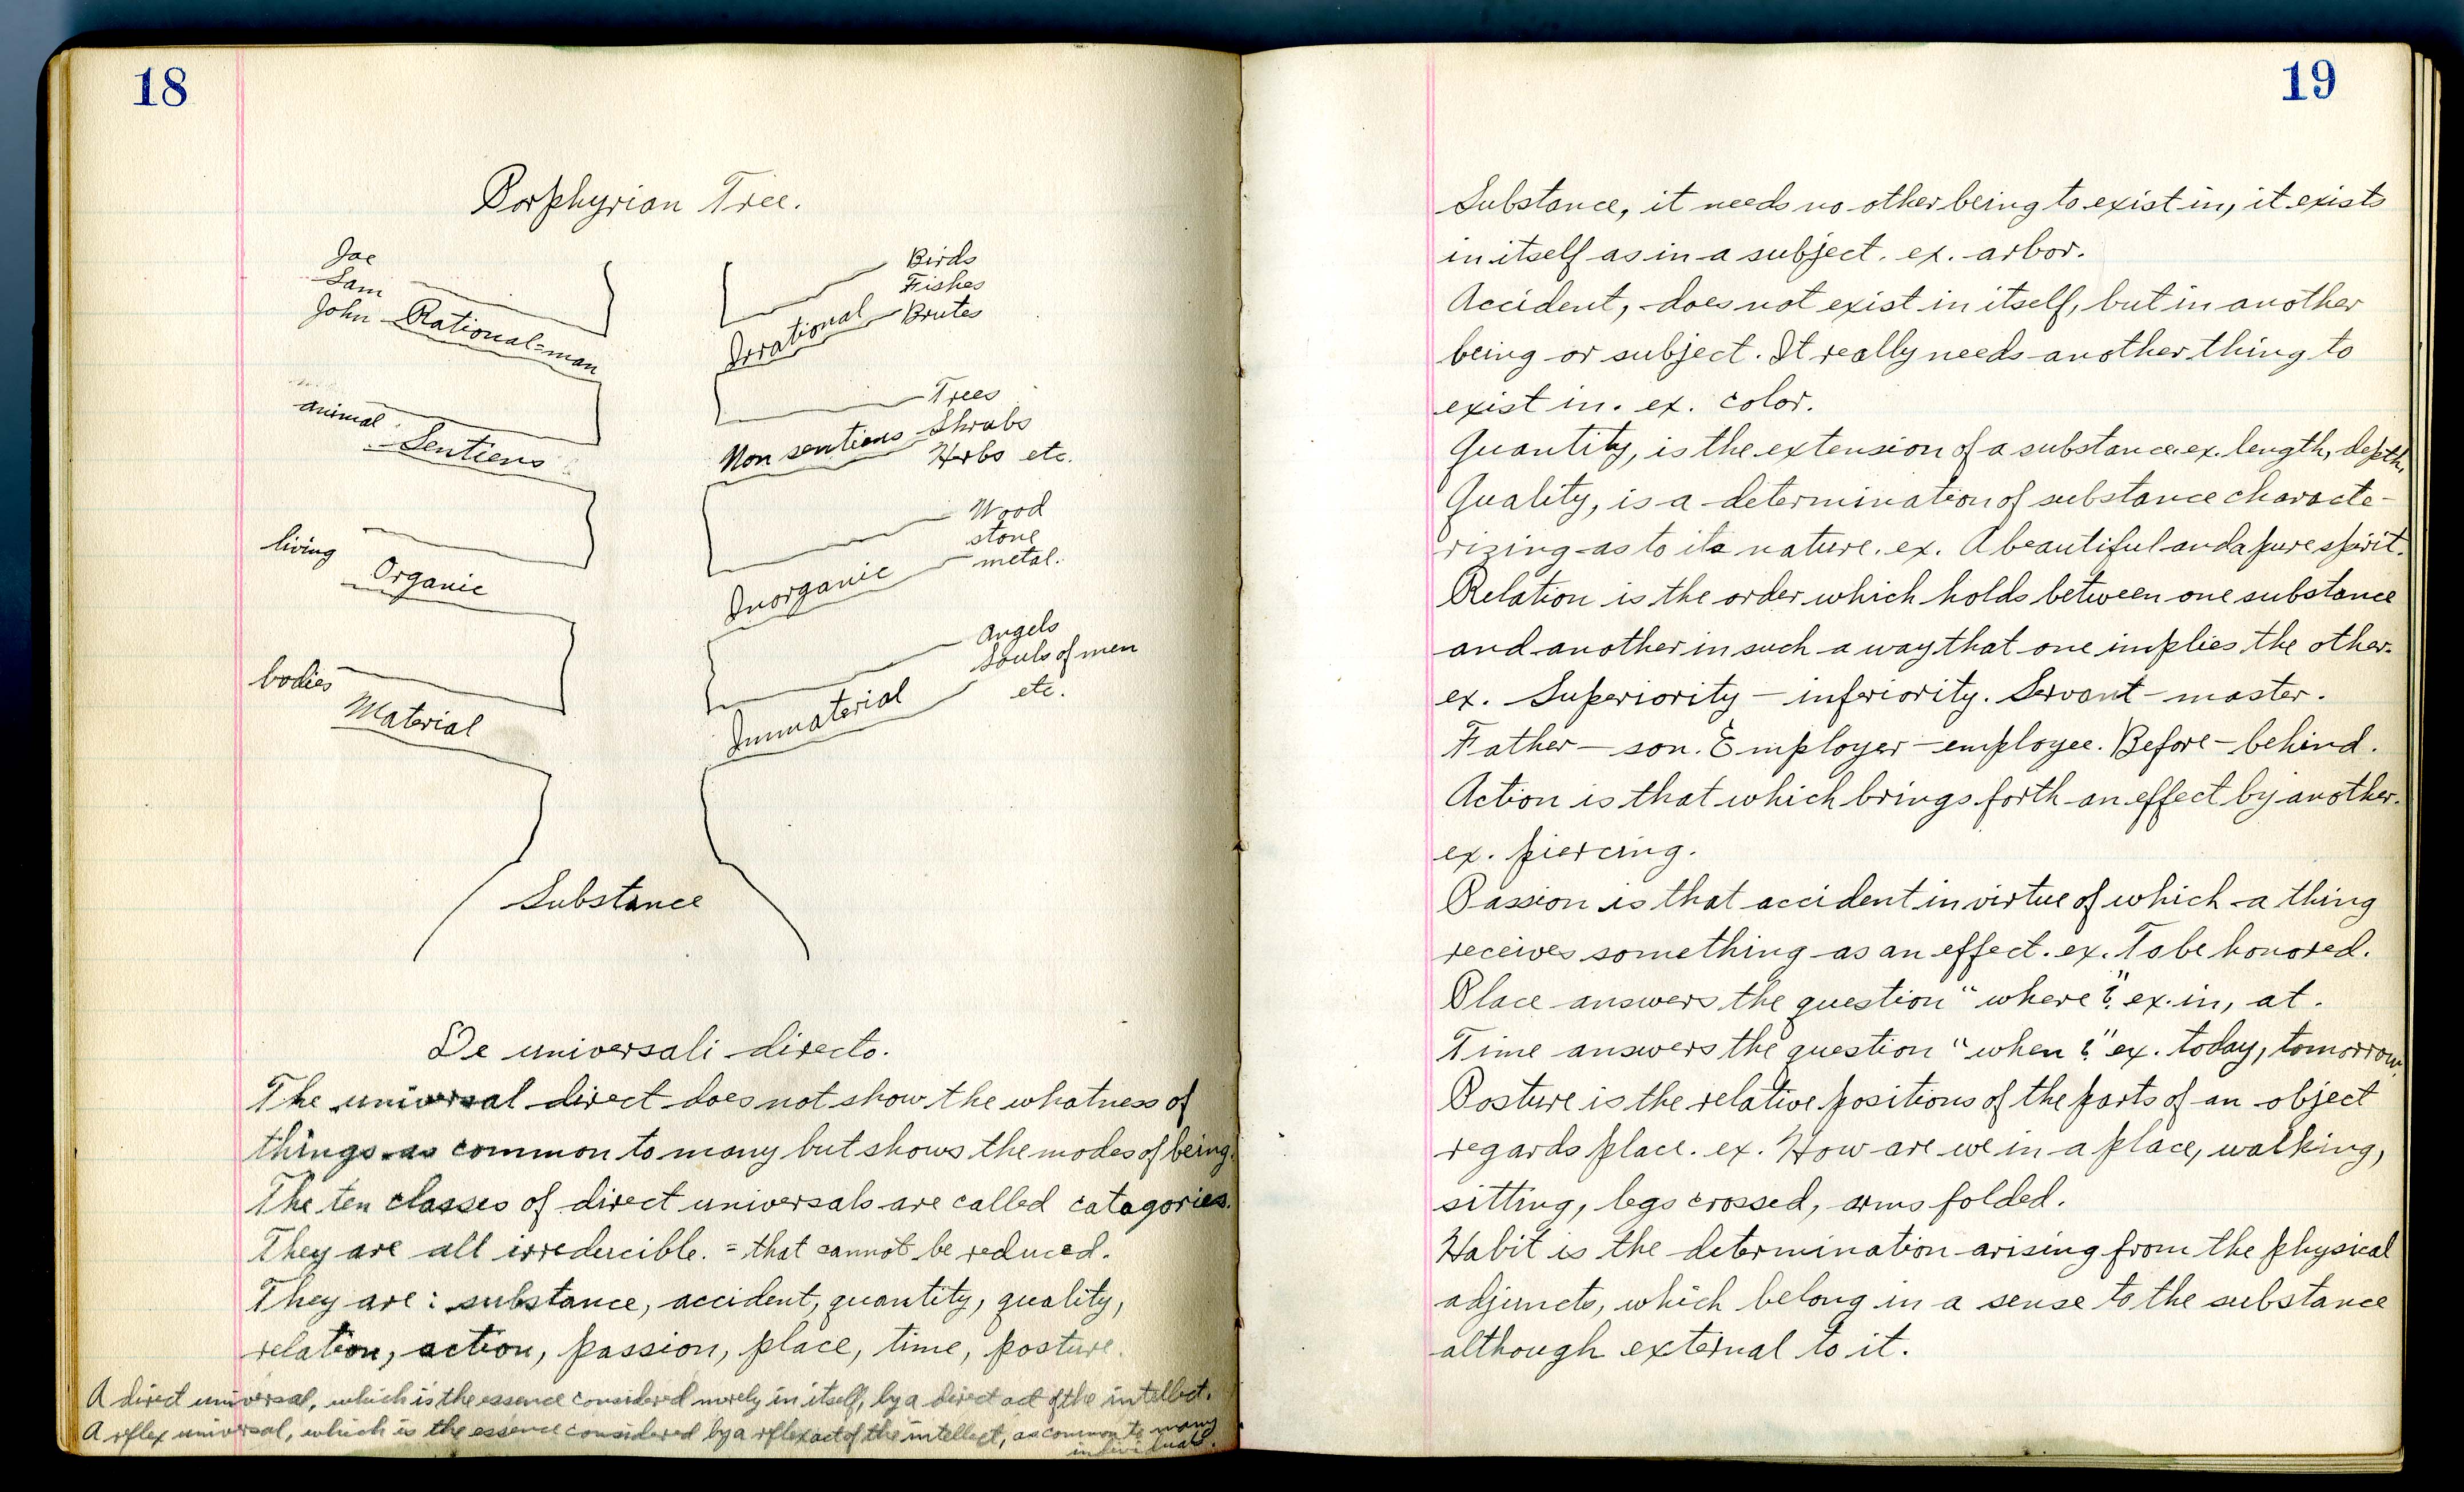 18
Porphyrian Tree.
Joe
Sam
John Rational=man
Birds
Fishes
Irrational Brutes
animal
Sentiens
Trees
Non sentiens Shrubs
Herbs etc.
living
Organic
Wood
stone
Inorganic metal.
bodies
Material
Angels
Souls of men
Immaterial etc.
Substance
De universali directo.
The universal direct does not show the whatness of
things as common to many but shows the modes of being.
The ten classes of direct universals are called catagories.
They are all irreducible. = that cannot be reduced.
They are: substance, accident, quantity, quality,
relation, action, passion, place, time, posture.
A direct universal, which is the essence considered merely in itself, by a direct act of the intellect.
A reflex universal, which is the essence considered by a reflex act of the intellect, as common to many
individuals.
19
Substance, it needs no other being to exist in, it exists
in itself as in a subject. ex. arbor.
Accident, does not exist in itself, but in another
being or subject. It really needs another thing to
exist in. ex. color.
Quantity, is the extension of a substance. ex. length, depth,
Quality, is a determination of substance characte-
rizing as to its nature. ex. A beautiful and a pure spirit.
Relation is the order which holds between one substance
and another in such a way that one implies the other.
ex. Superiority - inferiority. Servant - master.
Father - son. Employer - employee. Before - behind.
Action is that which brings forth an effect by another.
ex. piercing.
Passion is that accident in virtue of which a thing
receives something as an effect. ex. To be honored.
Place answers the question "where?" ex. in, at.
Time answers the question "when?" ex. today, tomorrow.
Posture is the relative positions of the parts of an object
regards place. ex. How are we in a place, walking,
sitting, legs crossed, arms folded.
Habit is the determination arising from the physical
adjuncts, which belong in a sense to the substance
although external to it.